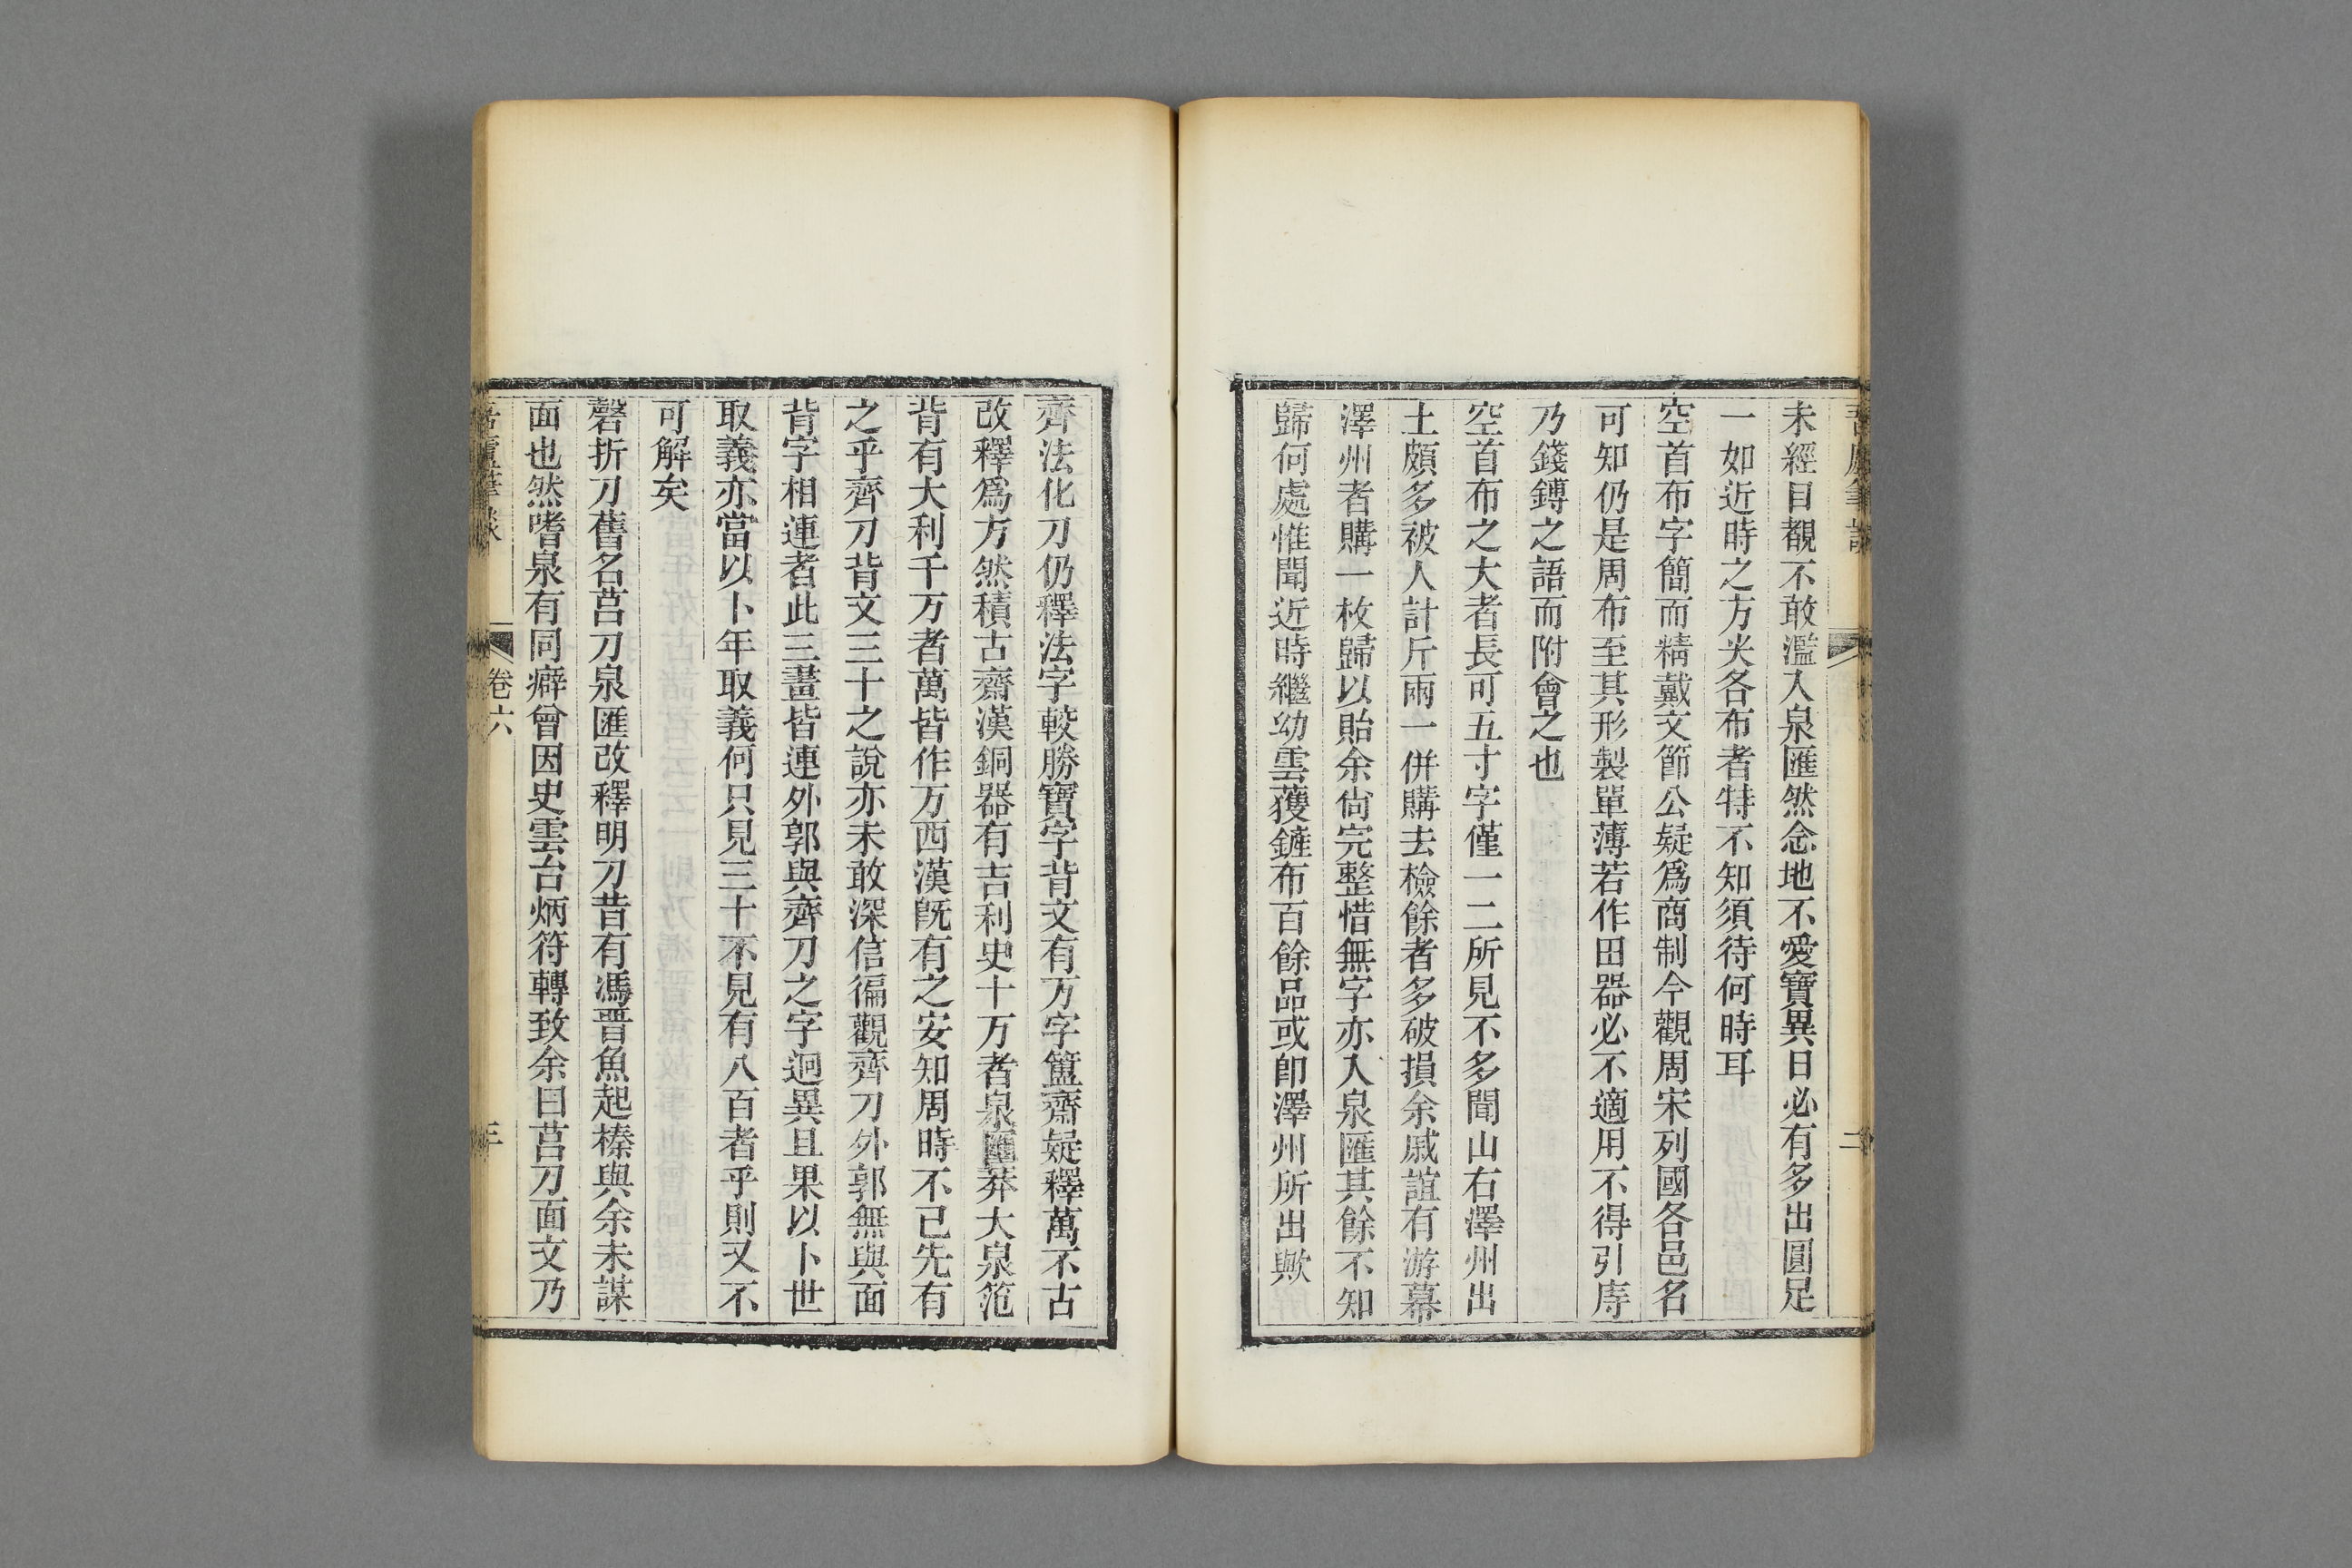 未經目覩不敢濫入泉匯然念地不愛寶異日必有多出圓足
一如近時之方尖各布者特不知須待何時耳
空首布字簡而精戴文節公疑爲商制今觀周宋列國各邑名
可知仍是周布至其形製單薄若作田器必不適用不得引庤
乃錢鎛之語而附會之也
空首布之大者長可五寸字僅一二所見不多聞山右澤州出
土頗多被人計斤兩一併購去檢餘者多破損余戚誼有游幕
澤州者購一枚歸以貽余尙完整惜無字亦入泉匯其餘不知
歸何處惟聞近時繼幼雲獲鏟布百餘品或卽澤州所出歟
齊法化刀仍釋法字較勝寶字背文有万字簠齋疑釋萬不古
改釋爲方然積古齋漢銅器有吉利史十万者泉匯莽大泉笵
背有大利千万者萬皆作万西漢旣有之安知周時不已先有
之乎齊刀背文三十之說亦未敢深信徧觀齊刀外郭無與面
背字相連者此三畫皆連外郭與齊刀之字迥異且果以卜世
取義亦當以卜年取義何只見三十不見有八百者乎則又不
可解矣
磬折刀舊名莒刀泉匯改釋明刀昔有馮晋魚起榛與余未謀
面也然嗜泉有同癖曾因史雲台炳符轉致余曰莒刀面文乃
卷六
三